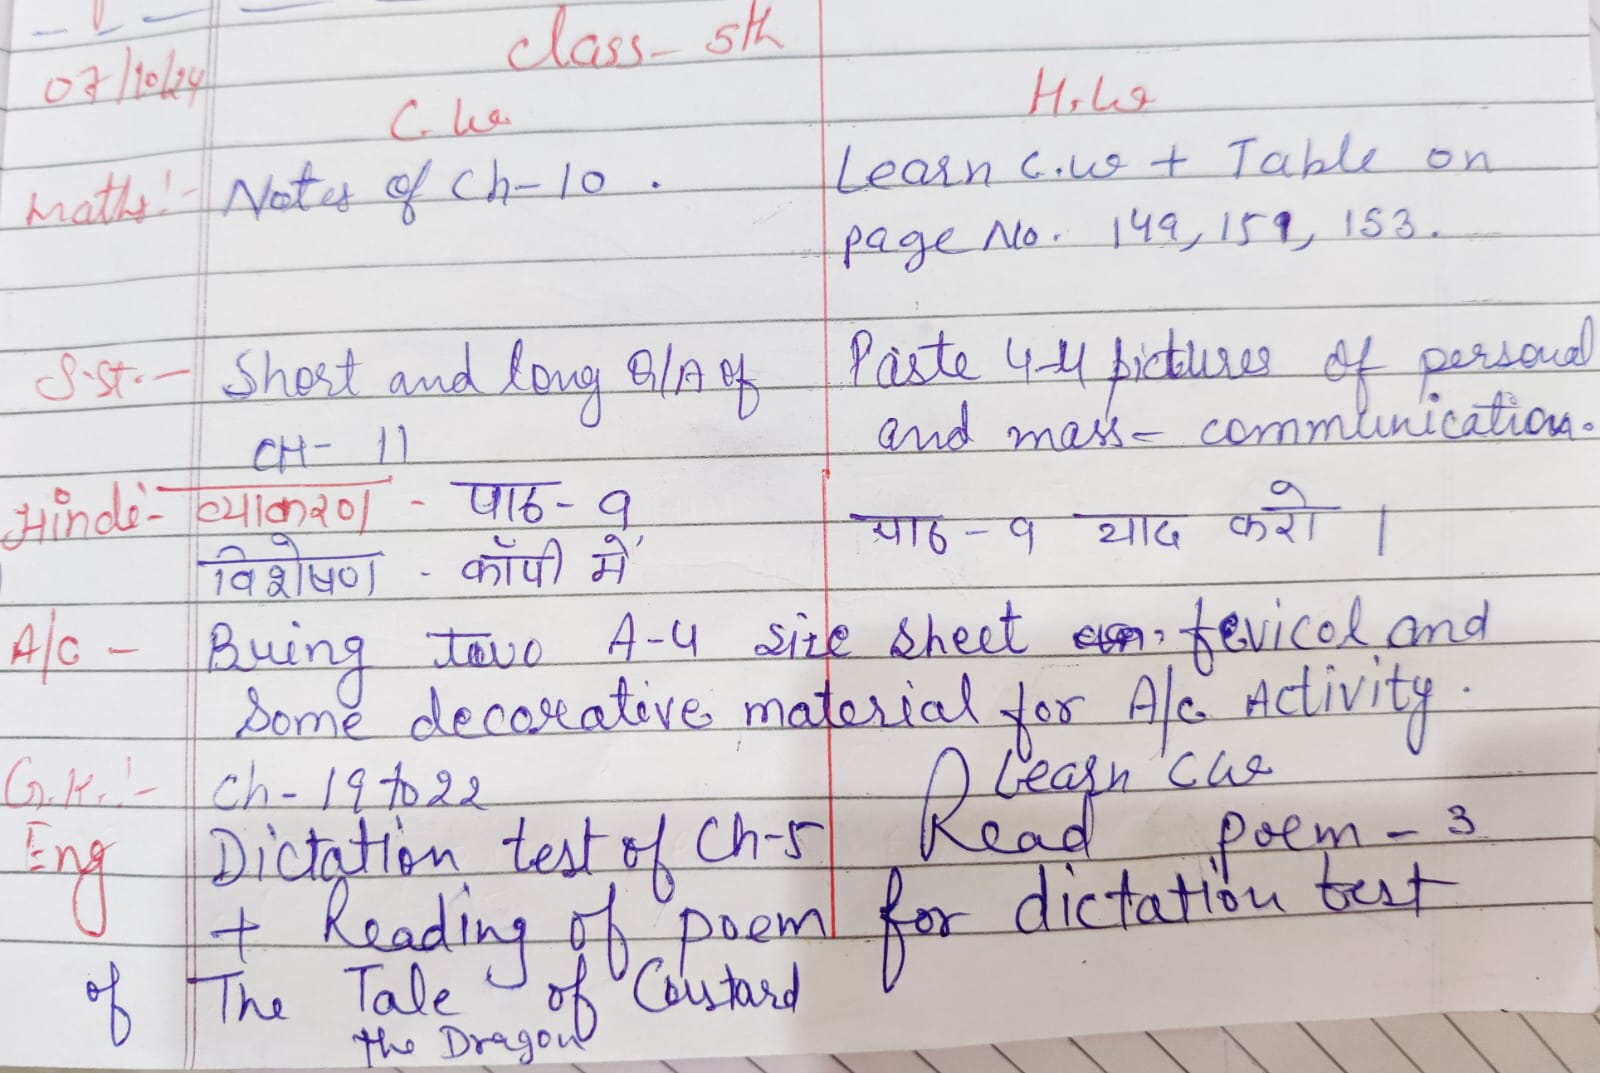 class- 5th
07/10/24
C.w
H.w
Maths:- Notes of Ch-10.
Learn C.w + Table on
page No. 149, 151, 153.
S.st.- Short and long Q/A of
CH- 11
Paste 4-4 pictures of personal
and mass- communication.
Hindi- व्याकरण - पाठ- ९
विशेषण - कॉपी में
पाठ-९ याद करो ।
A/C - Bring two A-4 size sheet, fevicol and
some decorative material for A/c Activity.
G.K.:- Ch-19 to 22
Learn cw
Eng Dictation test of Ch-5
+ Reading of poem
of The Tale of Custard
the Dragon
Read poem-3
for dictation test